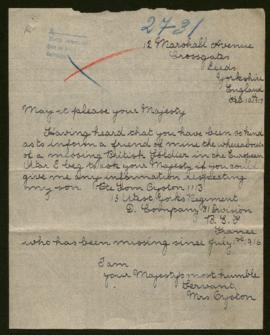 27-31
12 Marshall Avenue
Crossgates
Leeds
Yorkshire
England
May it please your Majesty
Having heard that you have been so kind
as to inform a friend of mine the whereabouts
of a missing British Soldier in the European
War I beg to ask your Majesty if you could
give me any information respecting
my son. Pte Tom Oyston 1113
15 West Yorks Regiment
D. Company 31 Division
B. E. F
France
who has been missing since July 1st 1916
I am
your Majesty's most humble
Servant,
Mrs Oyston